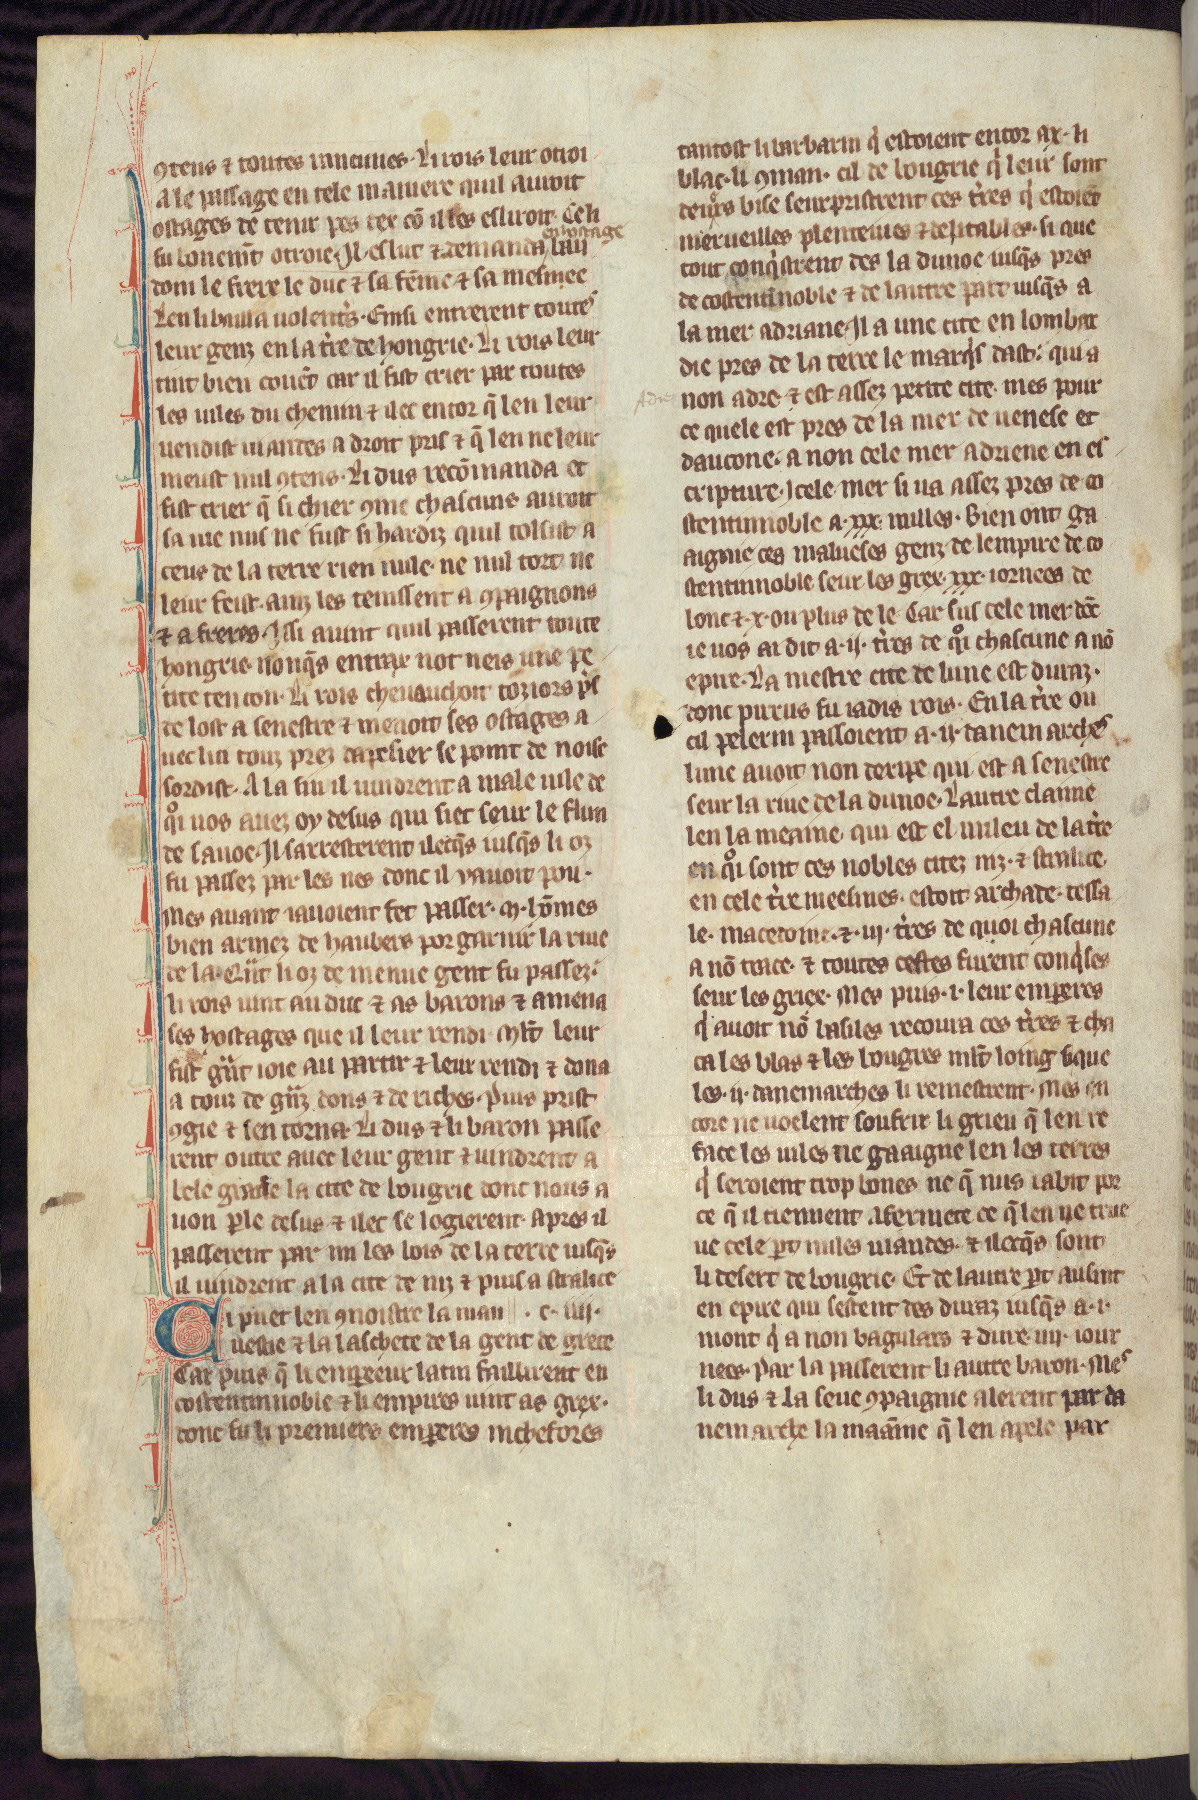 ꝯtens ⁊ toutes rancunes. Li rois leur otroi
a le passage en tele maniere quil auroit
ostages de tenir pes tex cō il les esliroit. Ce li
en hostage
fu bonemt̄ otroie. Il eslut ⁊ demanda bau
doin le frere le duc ⁊ sa fēme ⁊ sa mesniee
Len li bailla uolentrs̄. Einsi entrerent toutes
leur genz en la tr̄re de hongrie. Li rois leur
tint bien couēt car il fist crier par toutes
les uiles du chemin ⁊ ilec entor q̄ len leur
uendist uiandes a droit pris ⁊ q̄ len ne leur
meust nul ꝯtens. Li dus recōmanda et
fist crier q̄ si chier ꝯme chascuns auroit
sa uie nus ne fust si hardiz quil tolsist a
ceus de la terre rien nule. ne nul tort ne
leur feist. ainz les tenissent a ꝯpaignons
⁊ a freres. Issi auint quil passerent toute
hongrie nonqs̄ entrax not neis une pe
tite tencon. Li rois cheuauchoit toziors ps̄
de lost a senestre ⁊ menoit ses ostages a
uec lui touz prez dapesier se point de noise
sordist. A la fin il uindrent a male uile de
qoi uos auez oy desus qui siet seur le flun
de sauoe. Il sarresterent ilecqs̄ iusqs̄ li oz
fu passez par les nes donc il i auoit pou.
Mes auant i auoient fet passer. M. hōmes
bien armez de haubers por garnir la riue
de la. Qūt li oz de menue gent fu passez.
li rois uint au duc ⁊ as barons ⁊ amena
ses hostages que il leur rendi. Ml̄t leur
fist gr̄nt ioie au partir ⁊ leur rendi ⁊ dona
a touz de gr̄nz dons ⁊ de riches. Puis prist
ꝯgie ⁊ sen torna. Li dus ⁊ li baron passe
rent outre auec leur gent ⁊ uindrent a
bele graue la cite de bougrie dont nous a
uon ꝑle desus ⁊ ilec se logierent. Apres il
passerent par mi les bois de la terre iusqs̄
il uindrent a la cite de niz ⁊ puis a stralice
Ci puet len ꝯnoistre la mau . c. iiij.
uestie ⁊ la laschete de la gent de grece
Car puis q̄ li empereur latin faillirent en
costentinnoble ⁊ li empires uint as grex.
donc fu li premiers emꝑeres nichefores
tantost li barbarin q̄ estoient entor ax. li
blac. li ꝯman. cil de bougrie q̄ leur sont
deuers bise seurpristrent ces tr̄res q̄ estoiēt
merueilles plenteiues ⁊ delitables. si que
tout conqistrent des la dunoe iusqs̄ pres
de costentinoble ⁊ de lautre part iusqs̄ a
la mer adriane. Il a une cite en lombar
die pres de la terre le marqis dast. qui a
non adre. ⁊ est assez petite cite. mes pour
ce quele est pres de la mer de uenese et
daucone. a non cele mer adriene en es
cripture. Icele mer si ua assez pres de co
stentinnoble a. xxx. milles. Bien ont ga
aignie ces malueses genz de lempire de co
stentinnoble seur les grex. xxx. iornees de
lonc ⁊. x. ou plus de le. Car sus cele mer dōt
ie uos ai dit a. ij. tr̄res de qoi chascune a nō
epire. La mestre cite de lune est duraz.
donc pirrus fu iadis rois. En la tr̄re ou
cil pelerin passoient a. ij. danemarches
lune auoit non deripe qui est a senestre
seur la riue de la dunoe. Lautre claime
len la meaine. qui est el milieu de la tr̄re
en qoi sont ces nobles citez niz. ⁊ stralice.
en cele tr̄re meesmes. estoit archade. tessa
le. macedoine. ⁊. iij. tr̄res de quoi chascune
a nō trace. ⁊ toutes cestes furent conqises
seur les griex. Mes puis. i. leur emꝑeres
q̄ auoit nō basiles recoura ces tr̄res ⁊ cha
ca les blas ⁊ les bougres ml̄t loing si que
les. ij. danemarches li remestrent. Mes en
core ne uoelent soufrir li grieu q̄ len re
face les uiles ne gaaigne len les terres
q̄ seroient trop bones ne q̄ nus i abit por
ce q̄ il tiennent a fermete ce q̄ len ne true
ue cele ꝑt nules uiandes. ⁊ ilecqs̄ sont
li desert de bougrie. Et de lautre ꝑt ausint
en epire qui sestent des duraz iusqs̄ a. i.
mont q̄ a non bagulars ⁊ dure. iiij. iour
nees. Par la passerent li autre baron. Mes
li dus ⁊ la seue ꝯpaignie alerent par da
nemarche la maāine q̄ len apele par